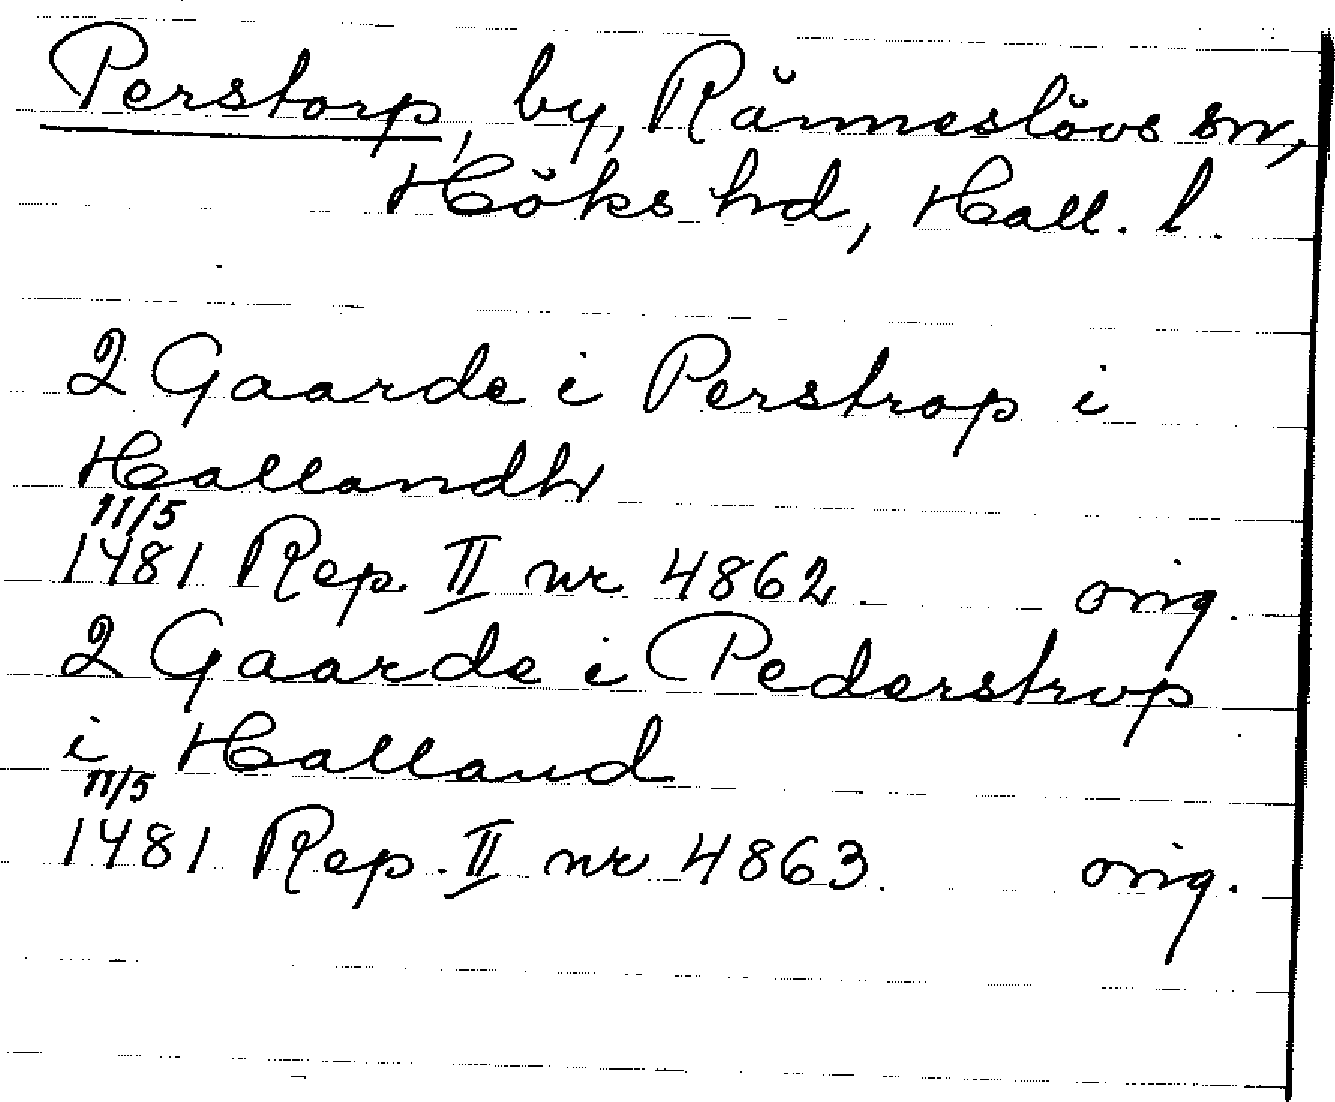 Perstorp, by, Ränneslövs sn,
Höks hd, Hall. l.
2 Gaarde i Perstrop i
Hallandh
11/5
1481 Rep. II nr 4862 orig.
2 Gaarde i Pederstrvp
i Halland
11/5
1481 Rep. II nr 4863 orig.